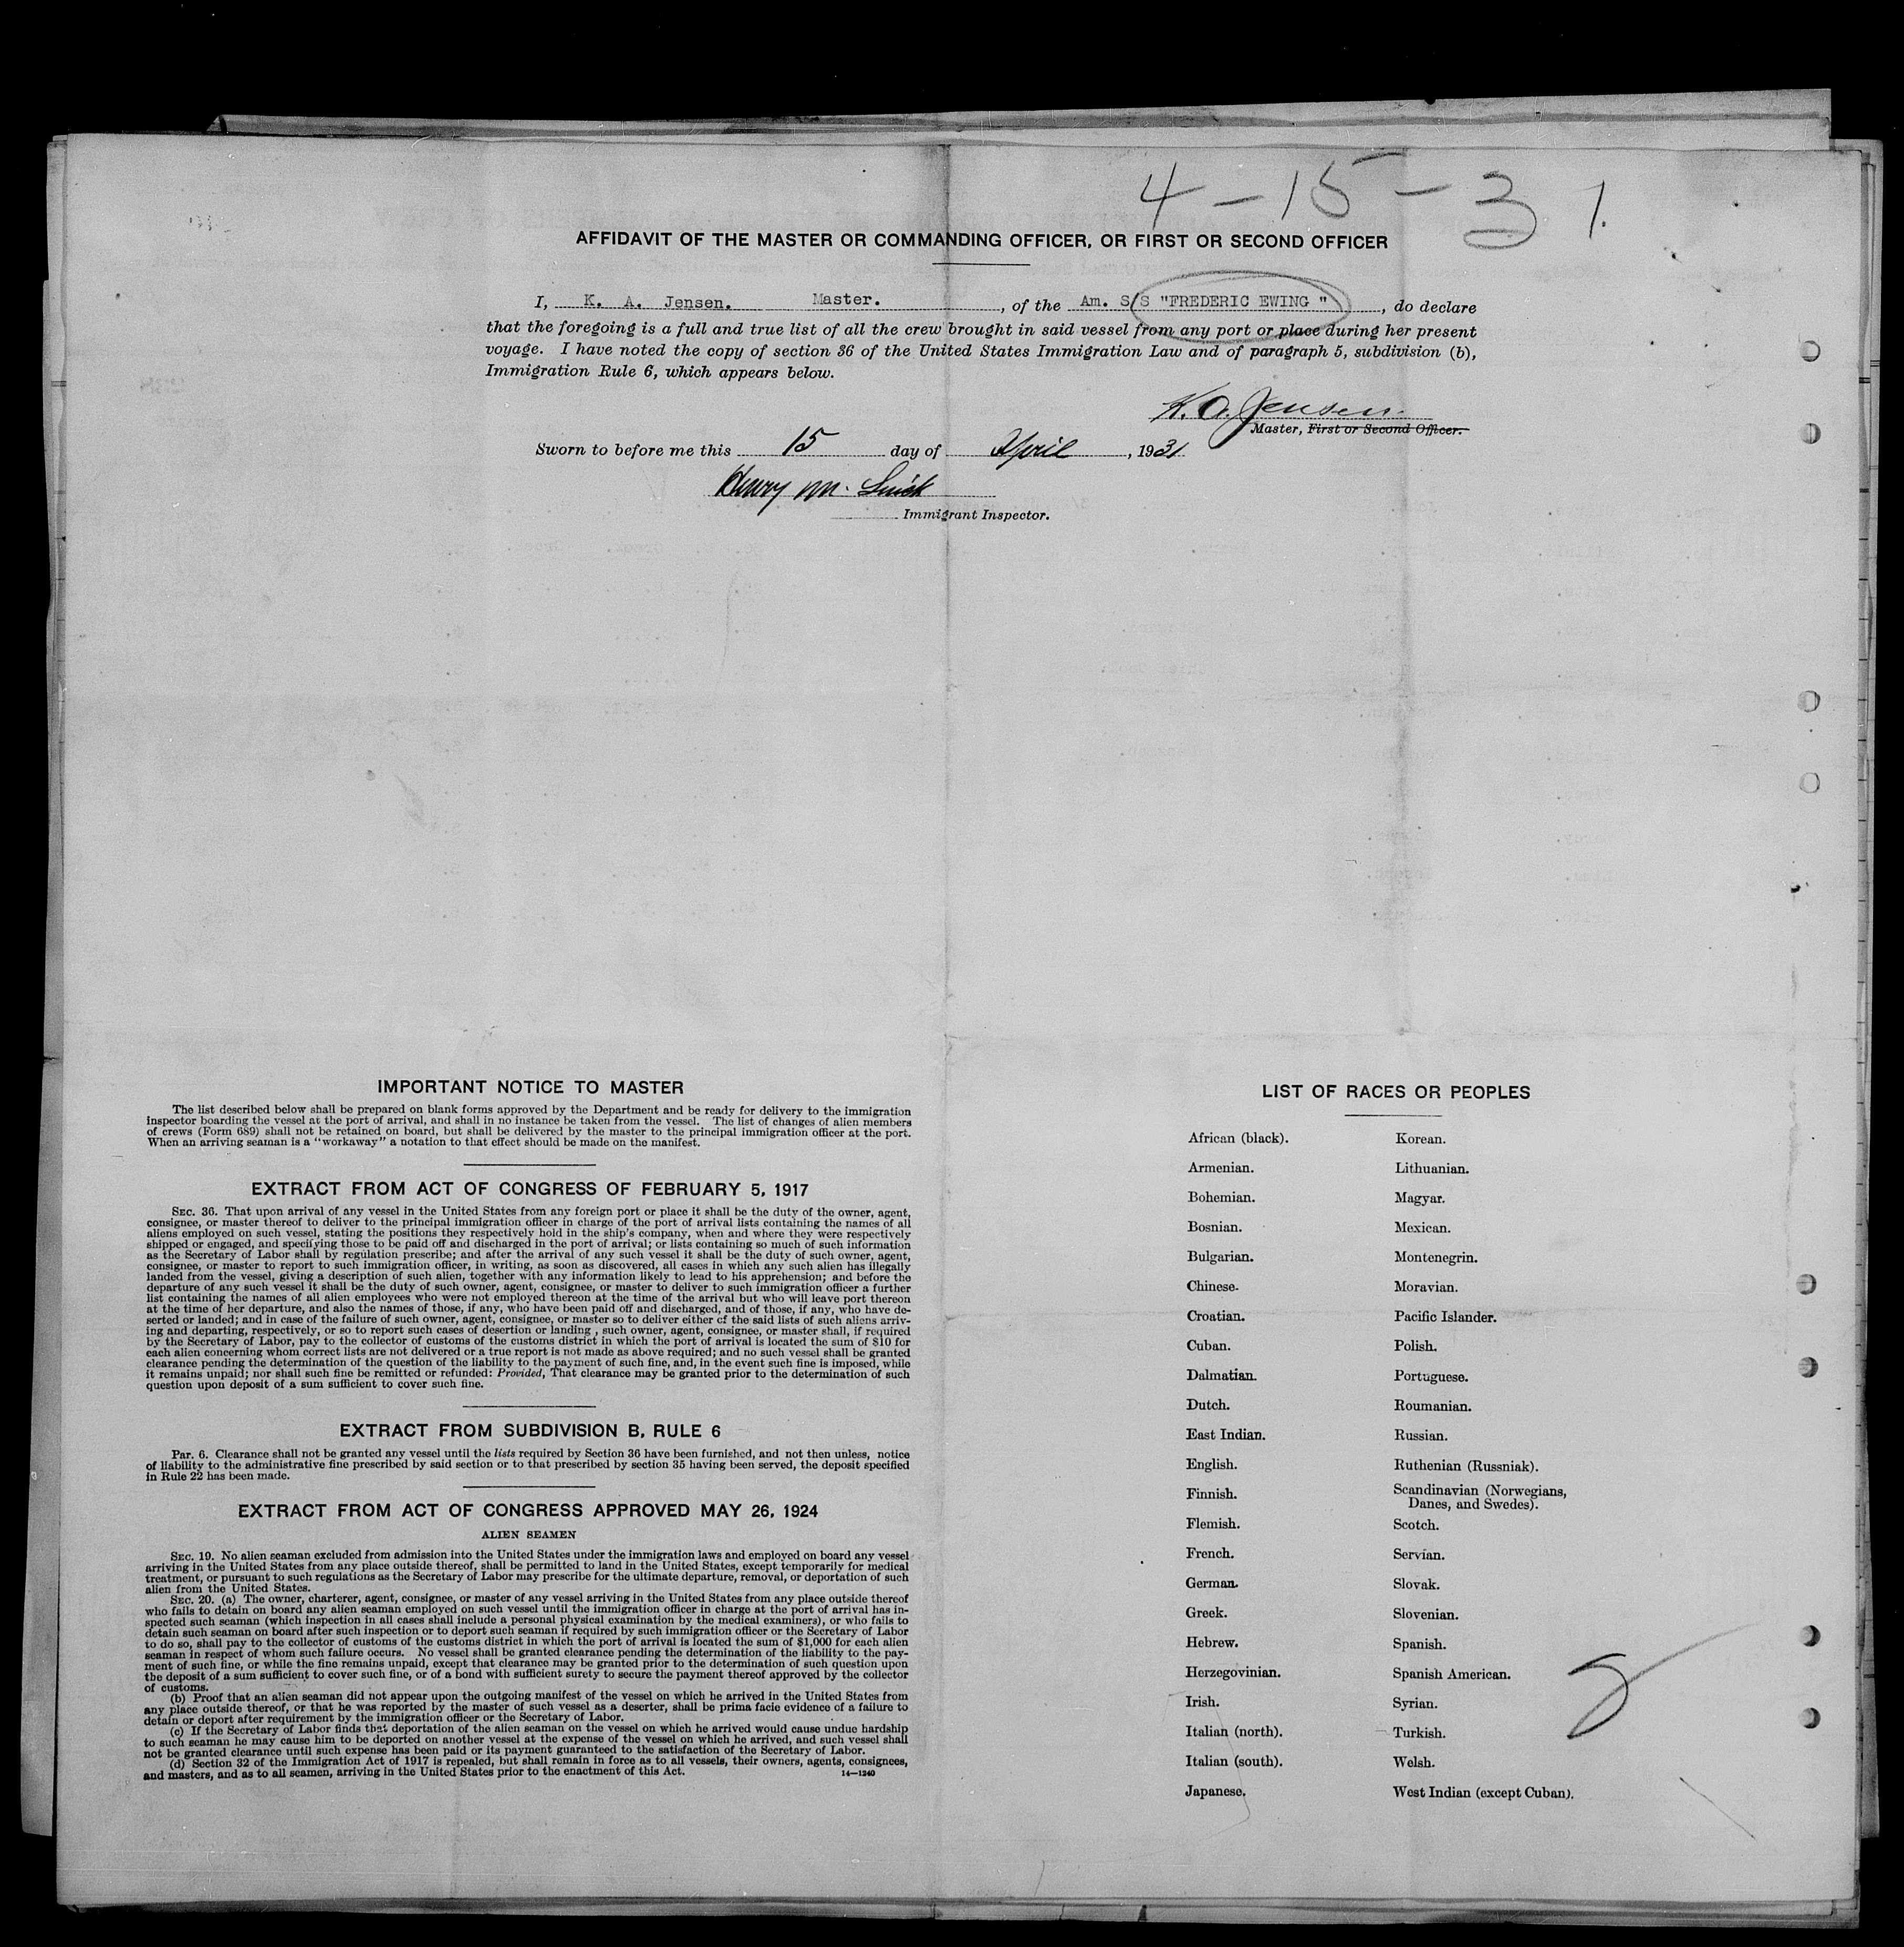 4-15-31.
AFFIDAVIT OF THE MASTER OR COMMANDING OFFICER, OR FIRST OR SECOND OFFICER
I, K. A. Jensen. Master. , of the Am. S/S "FREDERIC EWING " , do declare
that the foregoing is a full and true list of all the crew brought in said vessel from any port or place during her present
voyage. I have noted the copy of section 36 of the United States Immigration Law and of paragraph 5, subdivision (b),
Immigration Rule 6, which appears below.
K. A. Jensen.
Master, First or Second Officer.
Sworn to before me this 15 day of April , 1931
Henry M.
Immigrant Inspector.
IMPORTANT NOTICE TO MASTER
The list described below shall be prepared on blank forms approved by the Department and be ready for delivery to the immigration
inspector boarding the vessel at the port of arrival, and shall in no instance be taken from the vessel. The list of changes of alien members
of crews (Form 689) shall not be retained on board, but shall be delivered by the master to the principal immigration officer at the port.
When an arriving seaman is a "workaway" a notation to that effect should be made on the manifest.
EXTRACT FROM ACT OF CONGRESS OF FEBRUARY 5, 1917
SEC. 36. That upon arrival of any vessel in the United States from any foreign port or place it shall be the duty of the owner, agent,
consignee, or master thereof to deliver to the principal immigration officer in charge of the port of arrival lists containing the names of all
aliens employed on such vessel, stating the positions they respectively hold in the ship's company, when and where they were respectively
shipped or engaged, and specifying those to be paid off and discharged in the port of arrival; or lists containing so much of such information
as the Secretary of Labor shall by regulation prescribe; and after the arrival of any such vessel it shall be the duty of such owner, agent,
consignee, or master to report to such immigration officer, in writing, as soon as discovered, all cases in which any such alien has illegally
landed from the vessel, giving a description of such alien, together with any information likely to lead to his apprehension; and before the
departure of any such vessel it shall be the duty of such owner, agent, consignee, or master to deliver to such immigration officer a further
list containing the names of all alien employees who were not employed thereon at the time of the arrival but who will leave port thereon
at the time of her departure, and also the names of those, if any, who have been paid off and discharged, and of those, if any, who have de-
serted or landed; and in case of the failure of such owner, agent, consignee, or master so to deliver either of the said lists of such aliens arriv-
ing and departing, respectively, or so to report such cases of desertion or landing , such owner, agent, consignee, or master shall, if required
by the Secretary of Labor, pay to the collector of customs of the customs district in which the port of arrival is located the sum of $10 for
each alien concerning whom correct lists are not delivered or a true report is not made as above required; and no such vessel shall be granted
clearance pending the determination of the question of the liability to the payment of such fine, and, in the event such fine is imposed, while
it remains unpaid; nor shall such fine be remitted or refunded: Provided, That clearance may be granted prior to the determination of such
question upon deposit of a sum sufficient to cover such fine.
EXTRACT FROM SUBDIVISION B, RULE 6
Par. 6. Clearance shall not be granted any vessel until the lists required by Section 36 have been furnished, and not then unless, notice
of liability to the administrative fine prescribed by said section or to that prescribed by section 35 having been served, the deposit specified
in Rule 22 has been made.
EXTRACT FROM ACT OF CONGRESS APPROVED MAY 26, 1924
ALIEN SEAMEN
SEC. 19. No alien seaman excluded from admission into the United States under the immigration laws and employed on board any vessel
arriving in the United States from any place outside thereof, shall be permitted to land in the United States, except temporarily for medical
treatment, or pursuant to such regulations as the Secretary of Labor may prescribe for the ultimate departure, removal, or deportation of such
alien from the United States.
SEC. 20. (a) The owner, charterer, agent, consignee, or master of any vessel arriving in the United States from any place outside thereof
who fails to detain on board any alien seaman employed on such vessel until the immigration officer in charge at the port of arrival has in-
spected such seaman (which inspection in all cases shall include a personal physical examination by the medical examiners), or who fails to
detain such seaman on board after such inspection or to deport such seaman if required by such immigration officer or the Secretary of Labor
to do so, shall pay to the collector of customs of the customs district in which the port of arrival is located the sum of $1,000 for each alien
seaman in respect of whom such failure occurs. No vessel shall be granted clearance pending the determination of the liability to the pay-
ment of such fine, or while the fine remains unpaid, except that clearance may be granted prior to the determination of such question upon
the deposit of a sum sufficient to cover such fine, or of a bond with sufficient surety to secure the payment thereof approved by the collector
of customs.
(b) Proof that an alien seaman did not appear upon the outgoing manifest of the vessel on which he arrived in the United States from
any place outside thereof, or that he was reported by the master of such vessel as a deserter, shall be prima facie evidence of a failure to
detain or deport after requirement by the immigration officer or the Secretary of Labor.
(c) If the Secretary of Labor finds that deportation of the alien seaman on the vessel on which he arrived would cause undue hardship
to such seaman he may cause him to be deported on another vessel at the expense of the vessel on which he arrived, and such vessel shall
not be granted clearance until such expense has been paid or its payment guaranteed to the satisfaction of the Secretary of Labor.
(d) Section 32 of the Immigration Act of 1917 is repealed, but shall remain in force as to all vessels, their owners, agents, consignees,
and masters, and as to all seamen, arriving in the United States prior to the enactment of this Act. 14—1240
LIST OF RACES OR PEOPLES
African (black). Korean.
Armenian. Lithuanian.
Bohemian. Magyar.
Bosnian. Mexican.
Bulgarian. Montenegrin.
Chinese. Moravian.
Croatian. Pacific Islander.
Cuban. Polish.
Dalmatian. Portuguese.
Dutch. Roumanian.
East Indian. Russian.
English. Ruthenian (Russniak).
Finnish. Scandinavian (Norwegians,
Danes, and Swedes).
Flemish. Scotch.
French. Servian.
German. Slovak.
Greek. Slovenian.
Hebrew. Spanish.
Herzegovinian. Spanish American.
Irish. Syrian.
Italian (north). Turkish.
Italian (south). Welsh.
Japanese. West Indian (except Cuban).